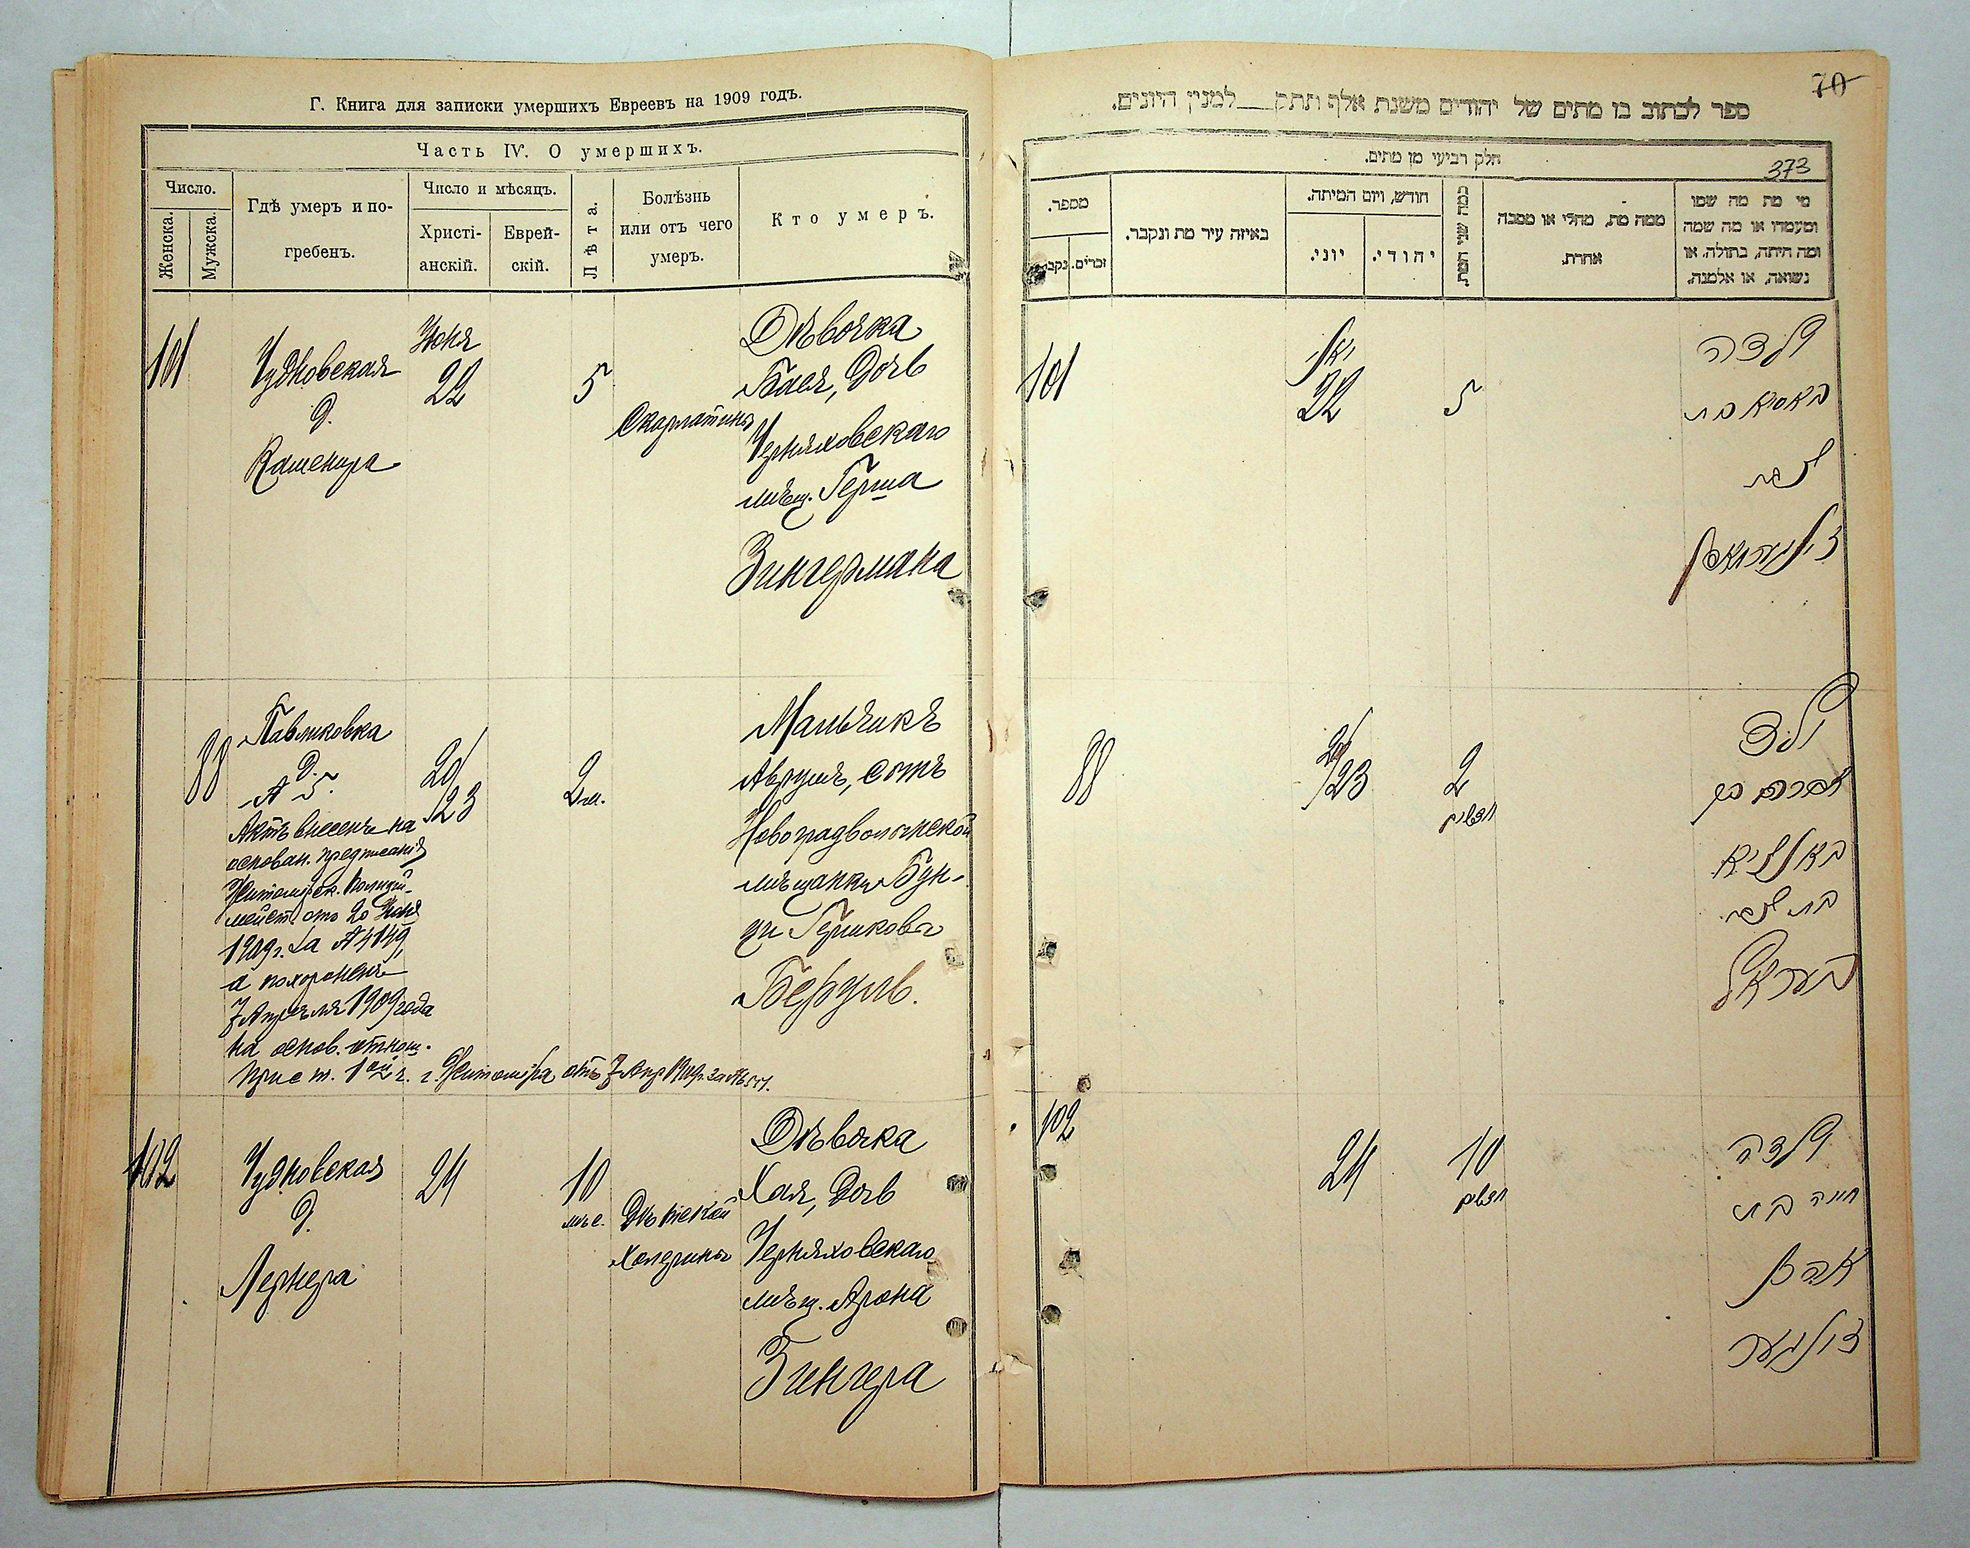 Г. Книга для записки умершихъ Евреевъ на 1909 годъ.
Часть IV. О умершихъ.
Число.
Женска.
Мужска.
Гдѣ умеръ и по-
гребенъ.
Число и мѣсяцъ.
Христі-
анскій.
Еврей-
скій.
Лѣта.
Болѣзнь
или отъ чего
умеръ.
Кто умеръ.
101
Чудновская
д.
Кашенира
Іюня
22
5
Скарлатина
Дѣвочка
Бася, Дочь
Черняховскаго
мѣщ. Герша
Зингермана
88
Павликовка
д.
Актъ внесенъ на
основан. предписанія
Житомірск. Полицій-
мейст. отъ 20 Іюня
1909г. за № 4149,
а похороненъ
7 Апрѣля 1909 года
на основ. отнош.
Прист. 1ой ч. г. Житоміра отъ 7 Апр 1909г. за №
20/
/23
2 м.
Мальчикъ
Аврумъ, сынъ
Новоградволынской
мѣщанки Бун-
ци Гершковы
102
Чудновская
д.
Лернера
24
10
мѣс.
Дѣтской
Холерины
Дѣвочка
Хая, Дочь
Черняховскаго
мѣщ. Арона
Зингера
70
ספר לכתוב בו מתים של יהודים משנת אלף תתק___למנין היונים.
373
חלק רביעי מן מתים.
מי מת מה שמו
ומעמדו או מה שמה
ומה היתה, בתולה. או
נשואה, או אלמנה.
ממה מת, מחלי או מסבה
אחרת.
כמה שני המת.
חודש, ויום המיתה.
יהודי.
יוני.
באיזה עיר מת ונקבר.
מספר.
זכרים.
נקב
101
22
5
ילדה
באסיא בת
הערש
זינגערמאן
88
23
2
חדשים
ילד
אברהם בן
בת הערש
102
24
10
חדשים
ילדה
חיה בת
אהרן
זינגער